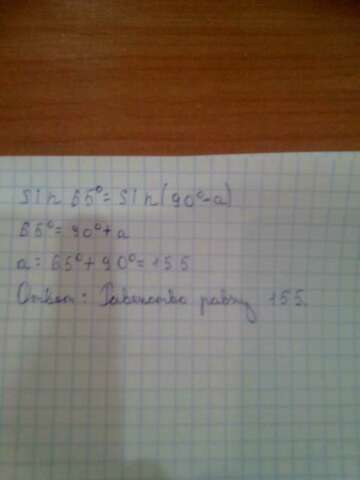 sin 65° = sin(90°-a)
65° = 90° + a
a = 65° + 90° = 155
Ответ: Равенство равну 155.